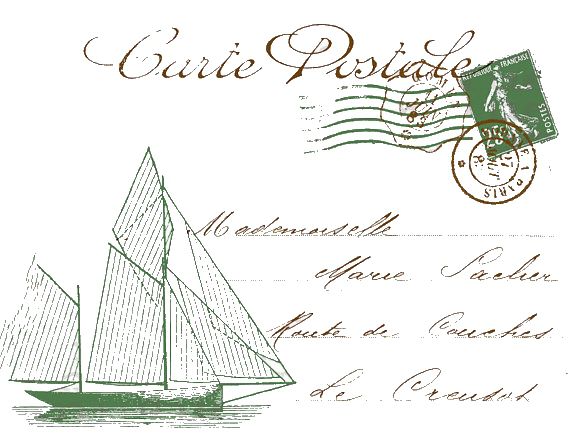 Carte Postale
REPUBLIQUE FRANÇAISE
POSTES
PARIS
Mademoiselle
Marie
Route de Couches
Le Creusot